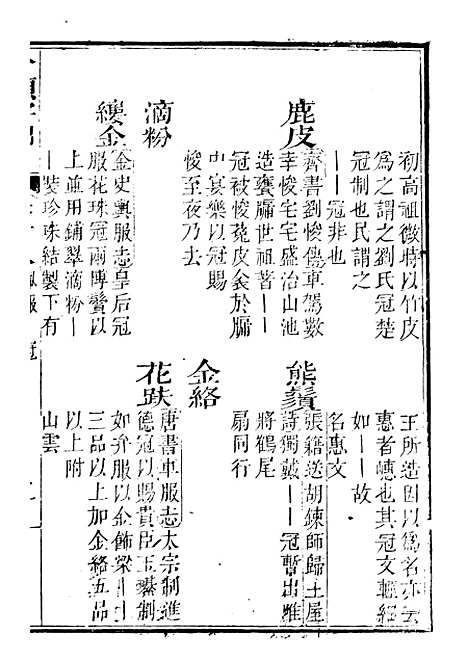 初高祖微時以竹皮
為之謂之劉氏冠楚
冠制也民謂之
丨丨冠非也
鹿皮
齊書劉悛傳車駕數
幸悛宅宅盛治山池
造甕牖世祖著丨丨
冠被悛菟皮衾於牖
中宴樂以冠賜
悛至夜乃去
滴粉
縷金
金史輿服志皇后冠
服花珠冠兩博鬢以
上並用鋪翠滴粉丨
丨裝珍珠結製下有
王所造因以為名亦云
惠者蟪也其冠文輕細
如丨丨故
名惠文
熊鬚
張籍送胡鍊師歸王屋
詩獨戴丨丨冠暫出唯
將鶴尾
扇同行
金絡
花趺
唐書車服志太宗制進
德冠以賜貴臣玉璂制
如弁服以金飾梁丨丨
三品以上加金絡五品
以上附
山雲